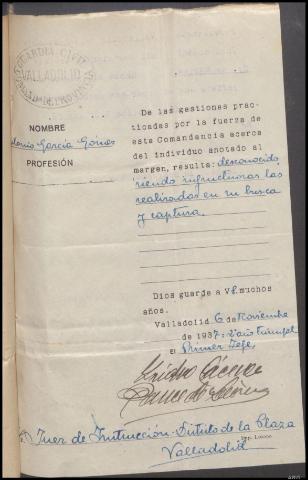 GUARDIA CIVIL
VALLADOLID
NOMBRE
Antonio García Gómez
PROFESIÓN
De las gestiones prac-
ticadas por la fuerza de
esta Comandancia acerca
del individuo anotado al
margen, resulta: desconocido
siendo infructuosas las
realizadas en su busca
y captura.
Dios guarde a VS. muchos
años.
Valladolid 6 de Noviembre
de 1937: 2º año triunfal
El Primer Jefe,
Juez de Instrucción Distrito de la Plaza
Valladolid